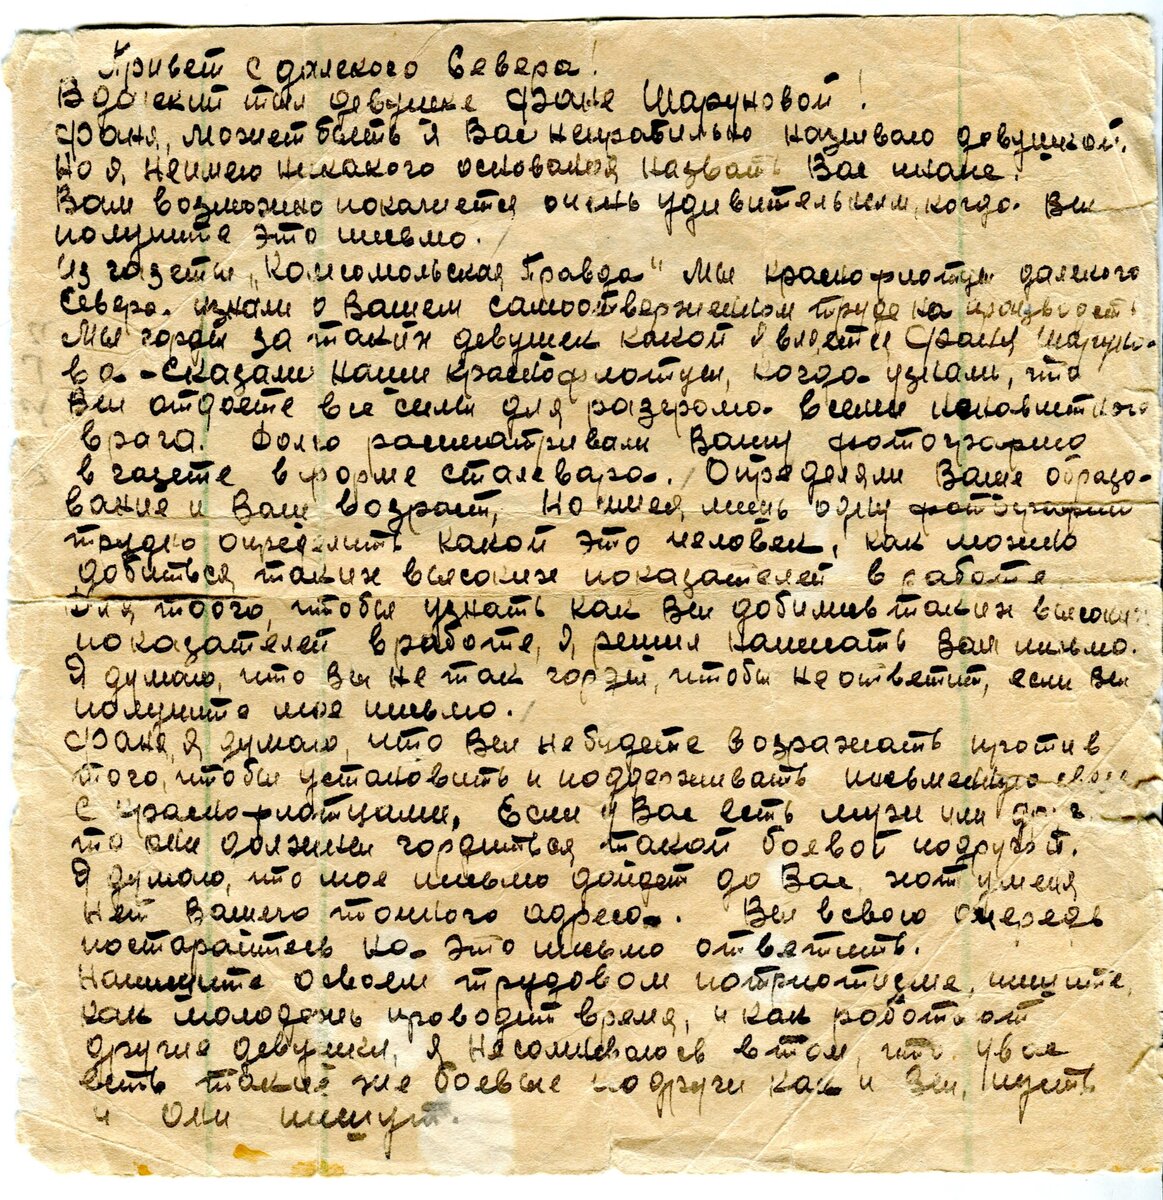 Привет с далекого Севера!
В далекий тыл девушке Фане Шаруновой!
Фаня, может быть я Вас неправильно называю девушкой.
Но я, неимею никакого основания назвать Вас иначе.
Вам возможно покажется очень удивительным, когда Вы
получите это письмо.
Из газеты "Комсомольская Правда" мы краснофлотцы далекого
Севера узнали о Вашем самоотверженном труде на производств
Мы горды за таких девушек какой является Фаня Шаруно-
ва - сказали наши краснофлотцы, когда узнали, что
Вы отдаете все силы для разгрома всеми ненавистного
врага. Долго рассматривали Вашу фотографию
в газете в форме сталевара. Определяли Ваше образо-
вание и Ваш возраст, но имея лишь одну фотографии
трудно определить какой это человек, как можно
добиться таких высоких показателей в работе
Для того, чтобы узнать как Вы добились таких высоких
показателей в работе, я, решил написать Вам письмо.
Я думаю, что Вы не так горды, чтобы не ответит, если Вы
получите мое письмо.
Фаня, я думаю, что Вы небудете возражать против
того, чтобы установить и поддерживать письменную связь
с краснофлотцами, Если у Вас есть муж или друг
то они должны гордиться такой боевой подругой.
Я думаю, что мое письмо дойдет до Вас, хот у меня
нет Вашего точного адреса. Вы в свою очередь
постарайтесь на это письмо ответить.
Напишите освоем трудовом потриотизме, пишите,
как молодежь проводит время, и как работают
другие девушки, я несомневаюсь в том, что увас
есть такие же боевые подруги как и Вы, пусть
и они пишут.